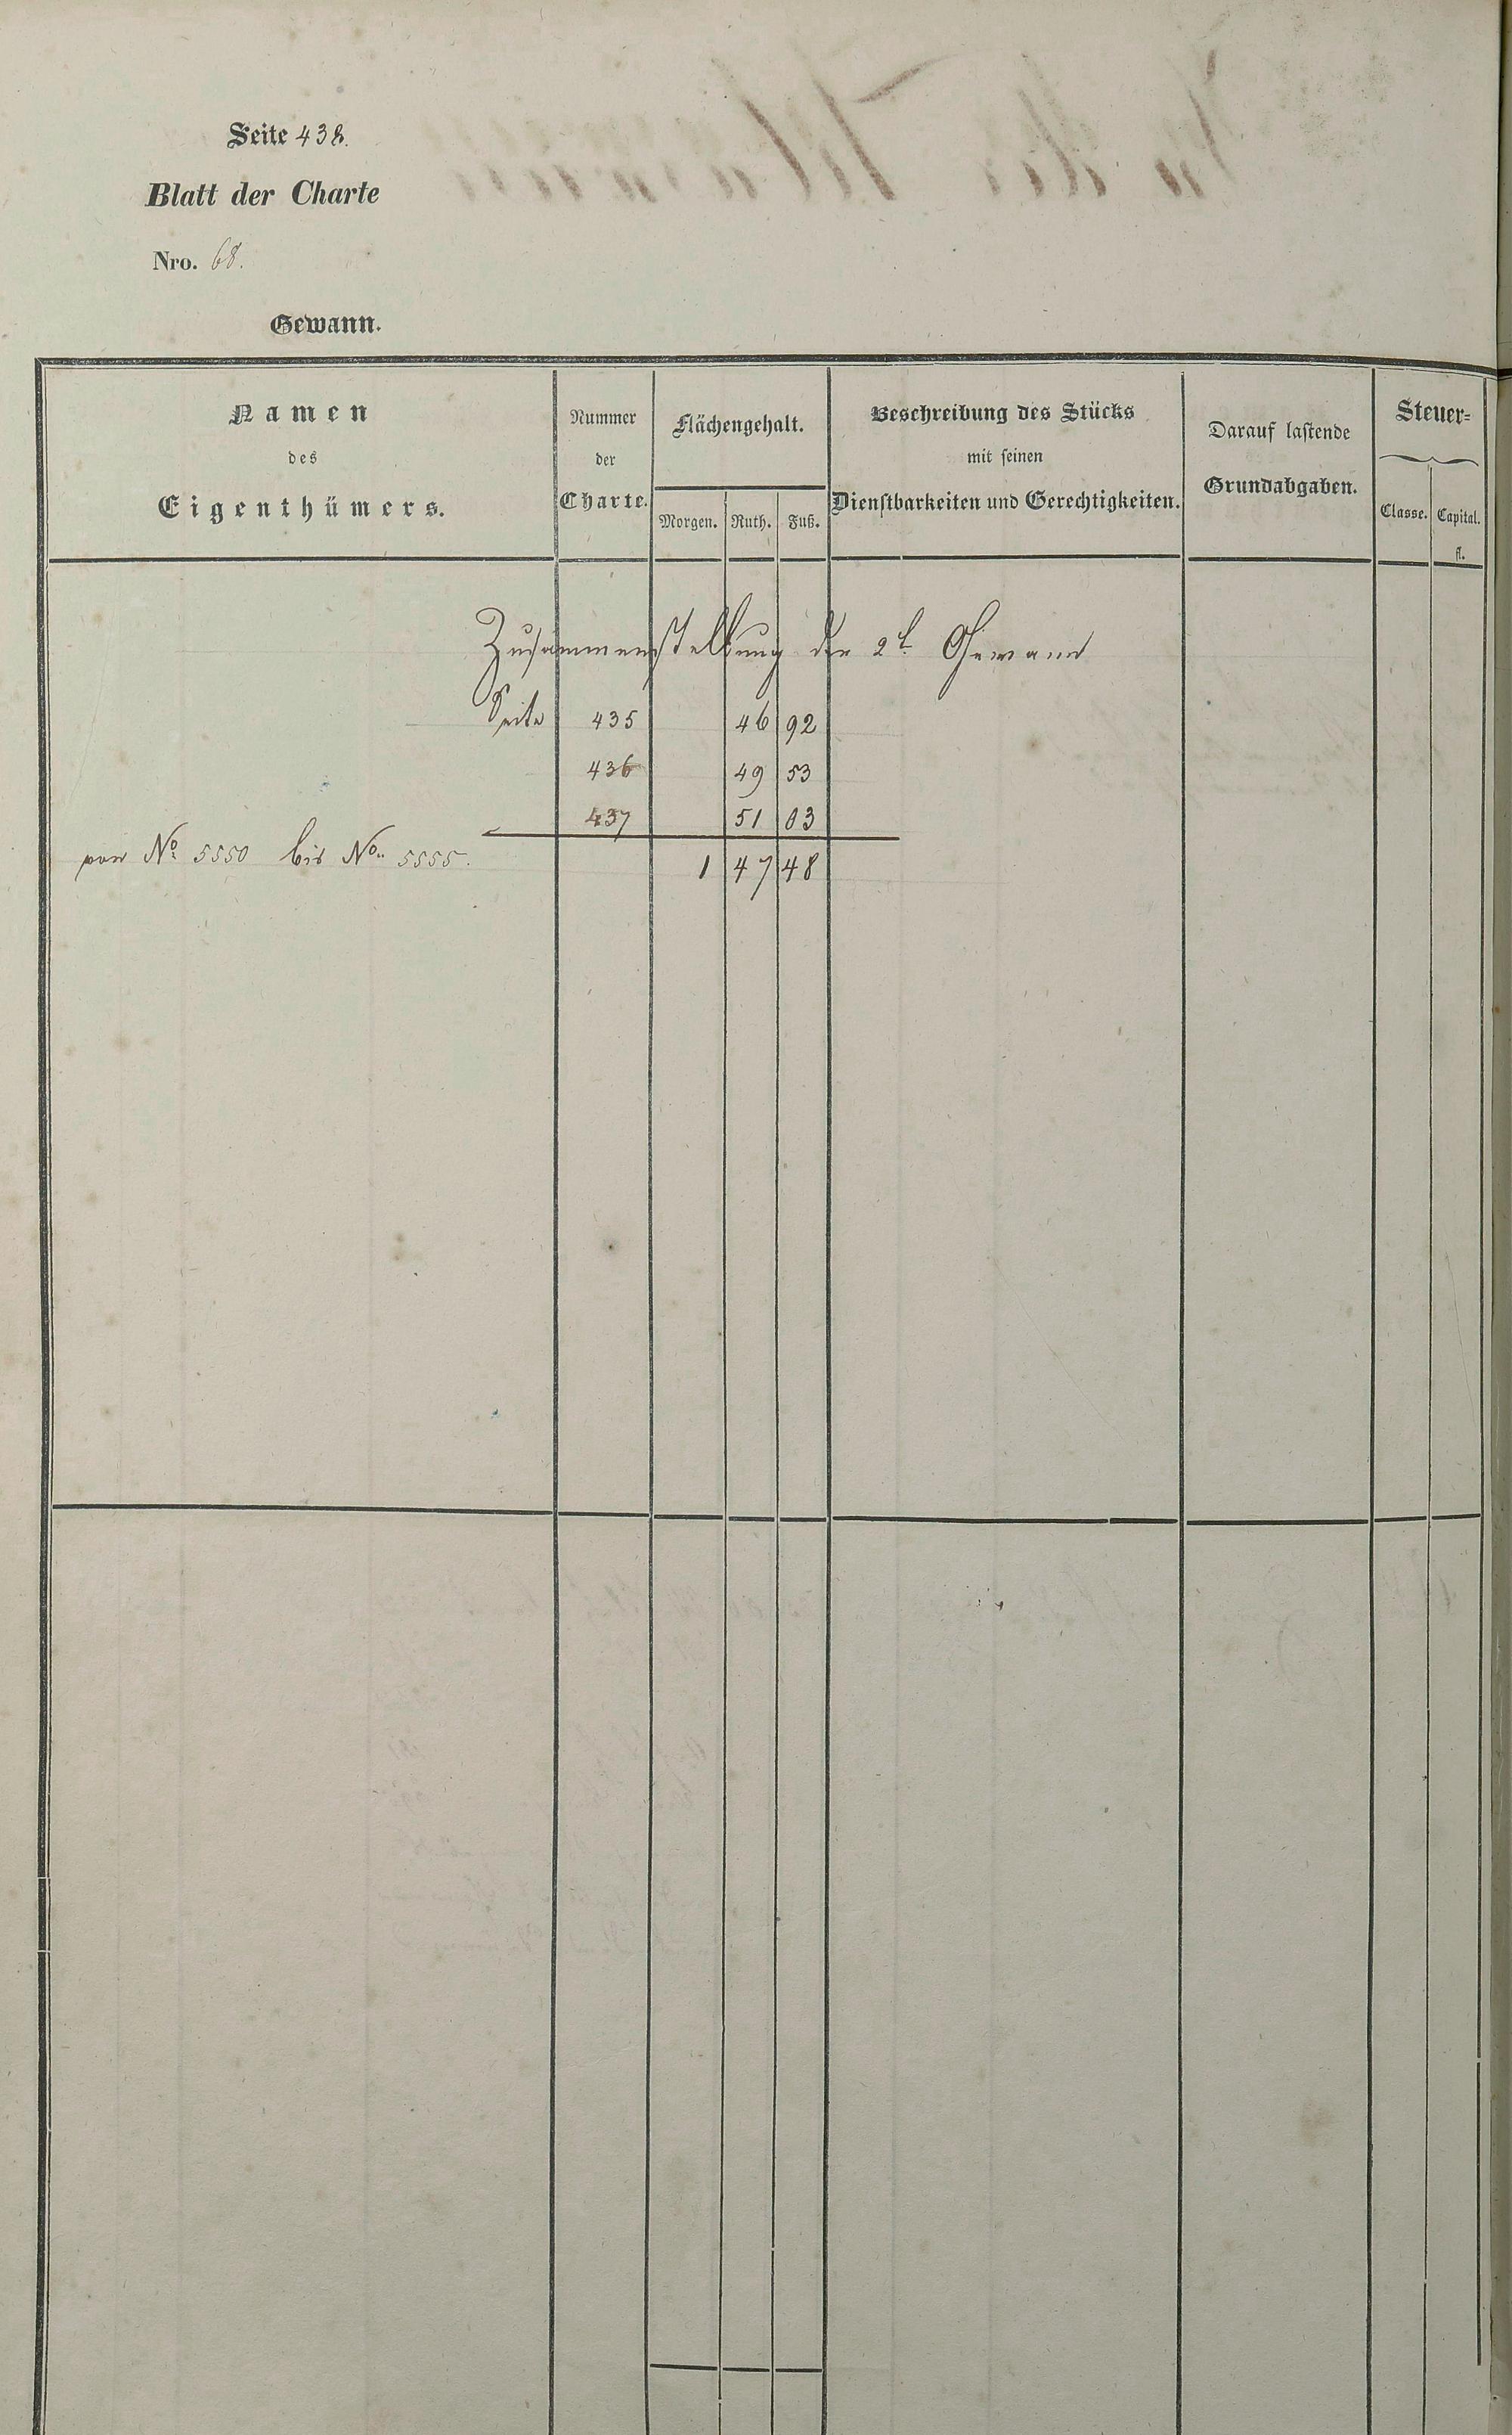 Seite 438.
Blatt der Charte
Nro. 68.
Gewann.
Namen
des
Eigenthümers.
Nummer
der
Charte.
Flächengehalt.
Morgen. Ruth. Fuß.
Beschreibung des Stücks
mit seinen
Dienstbarkeiten und Gerechtigkeiten.
Darauf lastende
Grundabgaben.
Steuer=
Classe. Capital.
fl.
Zusammenstellung der 2t. Gewann
Seite 435 46 92
436 49 53
437 51 03
von No. 5550 bis No. 5555. 1 47 48